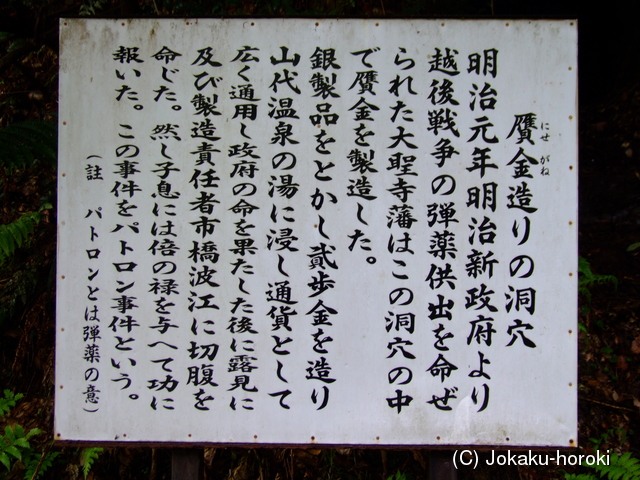 贋金造りの洞穴
にせ がね
明治元年明治新政府より
越後戦争の弾薬供出を命ぜ
られた大聖寺藩はこの洞穴の中
で贋金を製造した。
銀製品をとかし貳歩金を造り
山代温泉の湯に浸し通貨として
広く通用し政府の命を果たした後に露見に
及び製造責任者市橋波江に切腹を
命じた。然し子息には倍の禄を与へて功に
報いた。この事件をパトロン事件という。
(註 パトロンとは弾薬の意)
(C) Jokaku-horoki